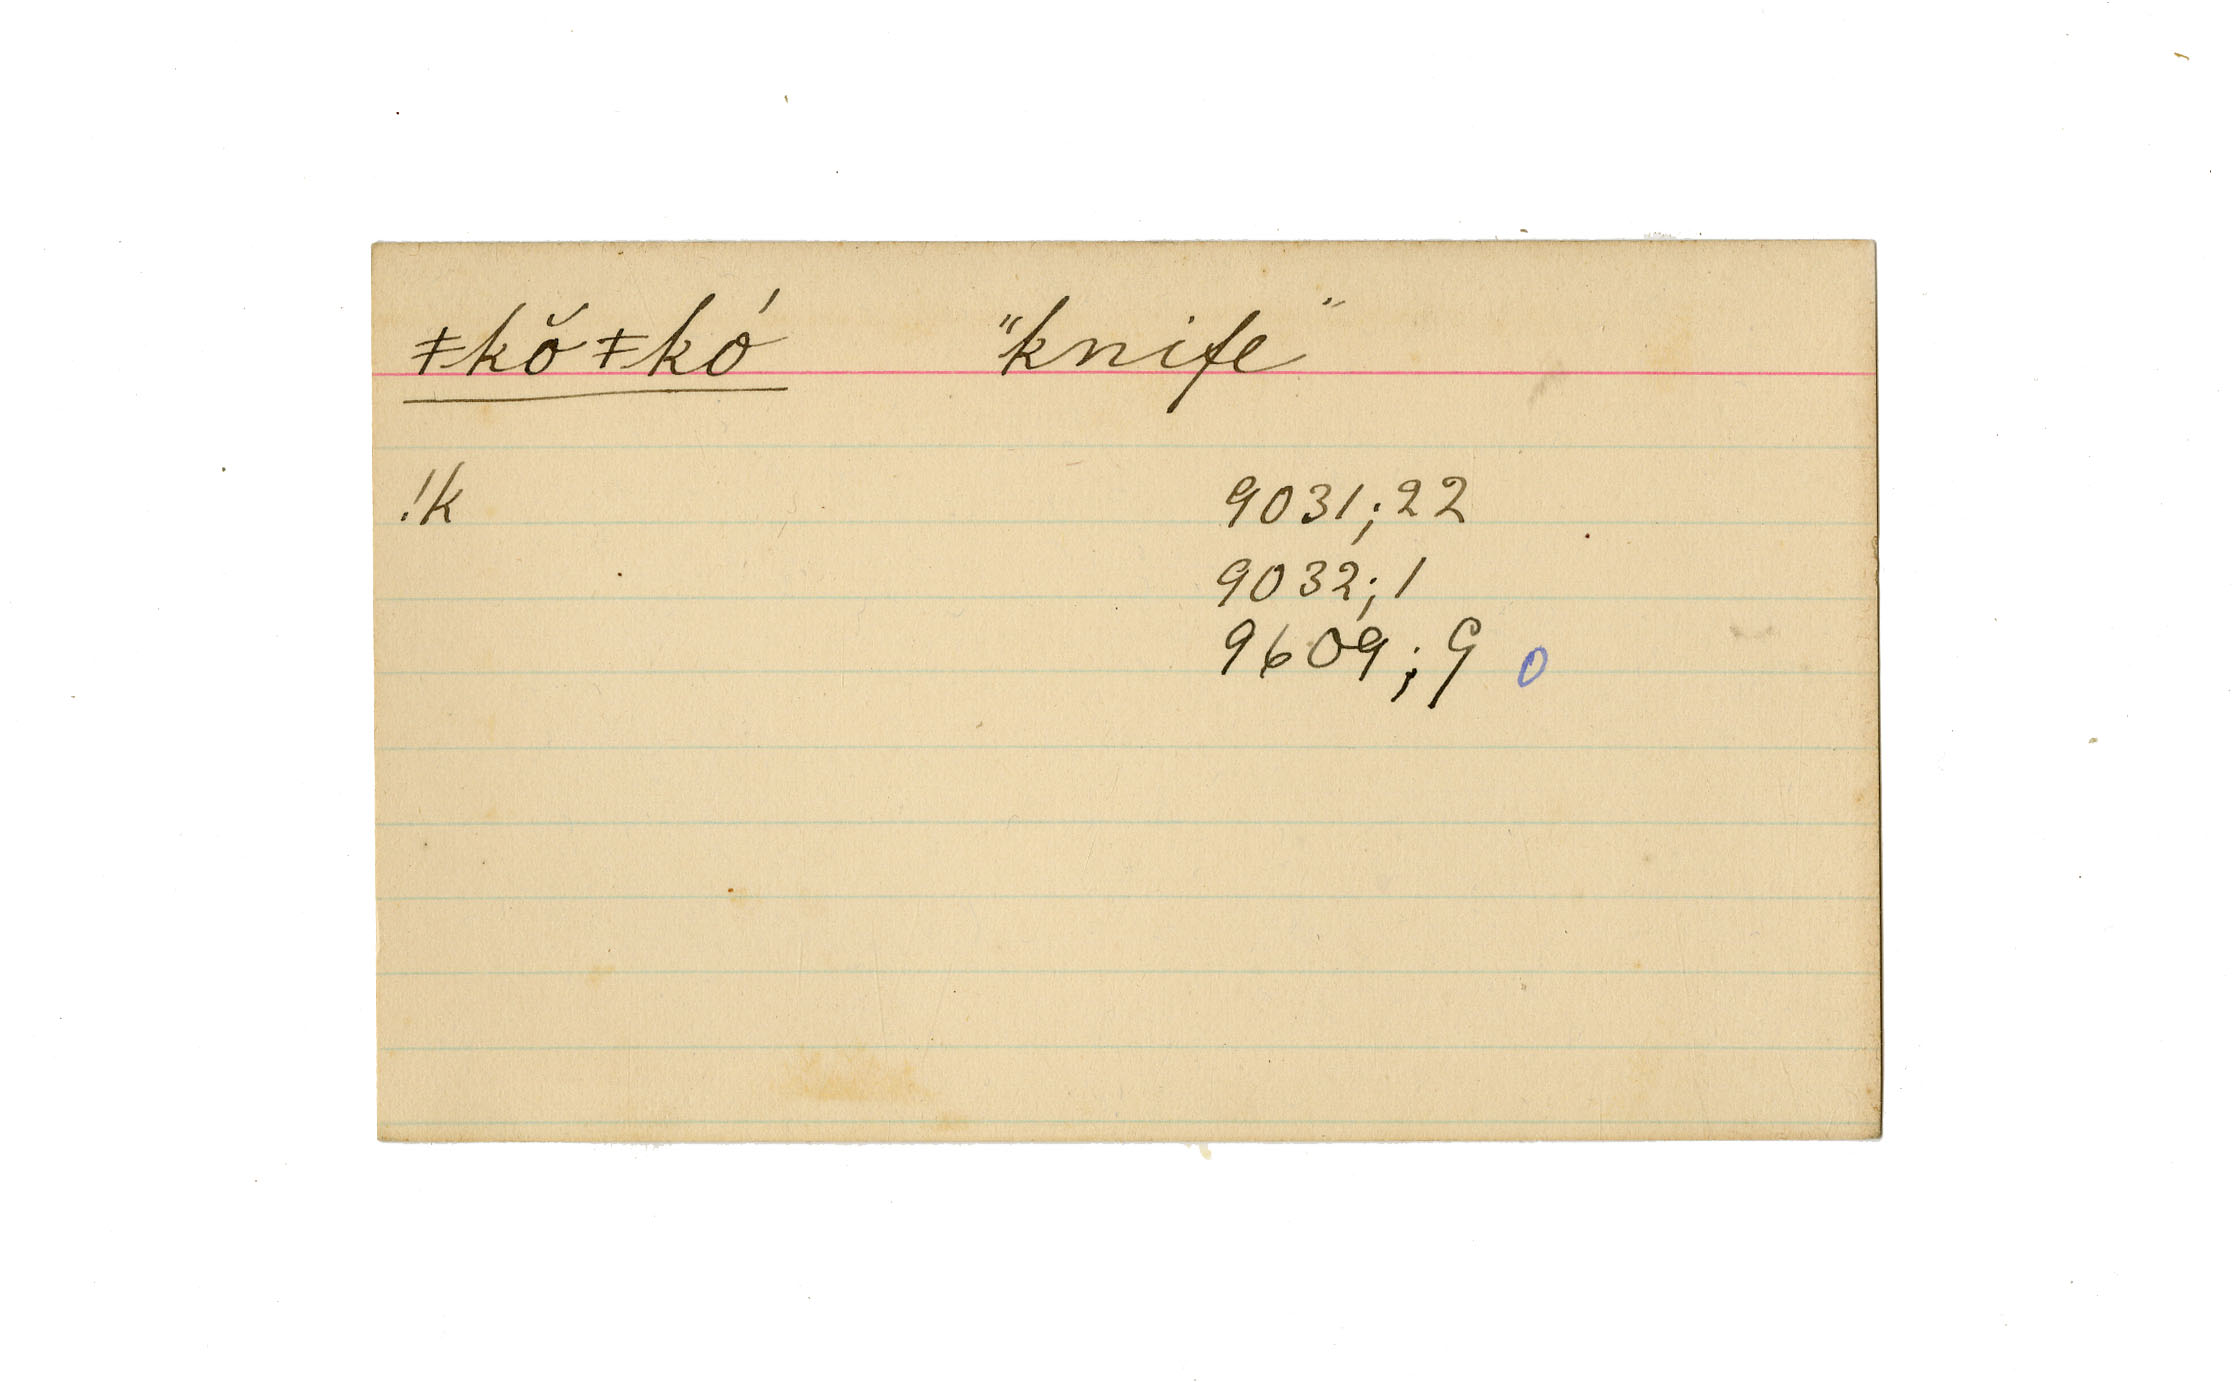 ǂkŏǂkó "knife"
!k 9031;22
9032;1
9609;9 0